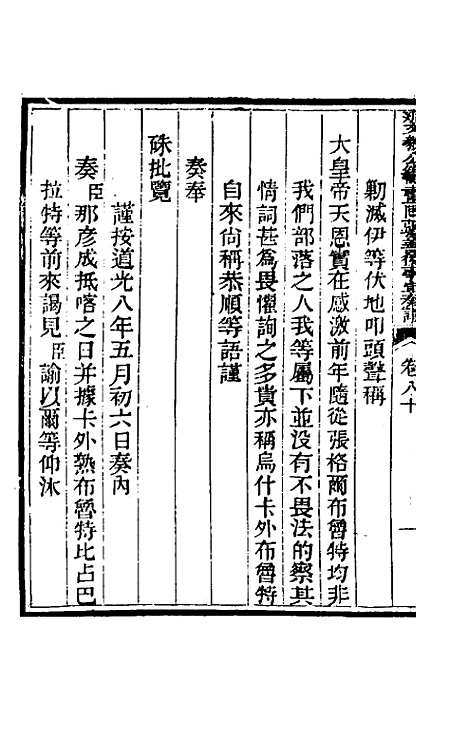 卷八十
勦滅伊等伏地叩頭聲稱
大皇帝天恩實在感激前年隨從張格爾布魯特均非
我們部落之人我等屬下並没有不畏法的察其
情詞甚爲畏懼詢之多貴亦稱烏什卡外布魯特
自來尙稱恭順等語謹
奏奉
硃批覽
謹按道光八年五月初六日奏內
奏臣那彥成抵喀之日并據卡外㷍布魯特比占巴
拉特等前來謁見臣諭以爾等仰沐